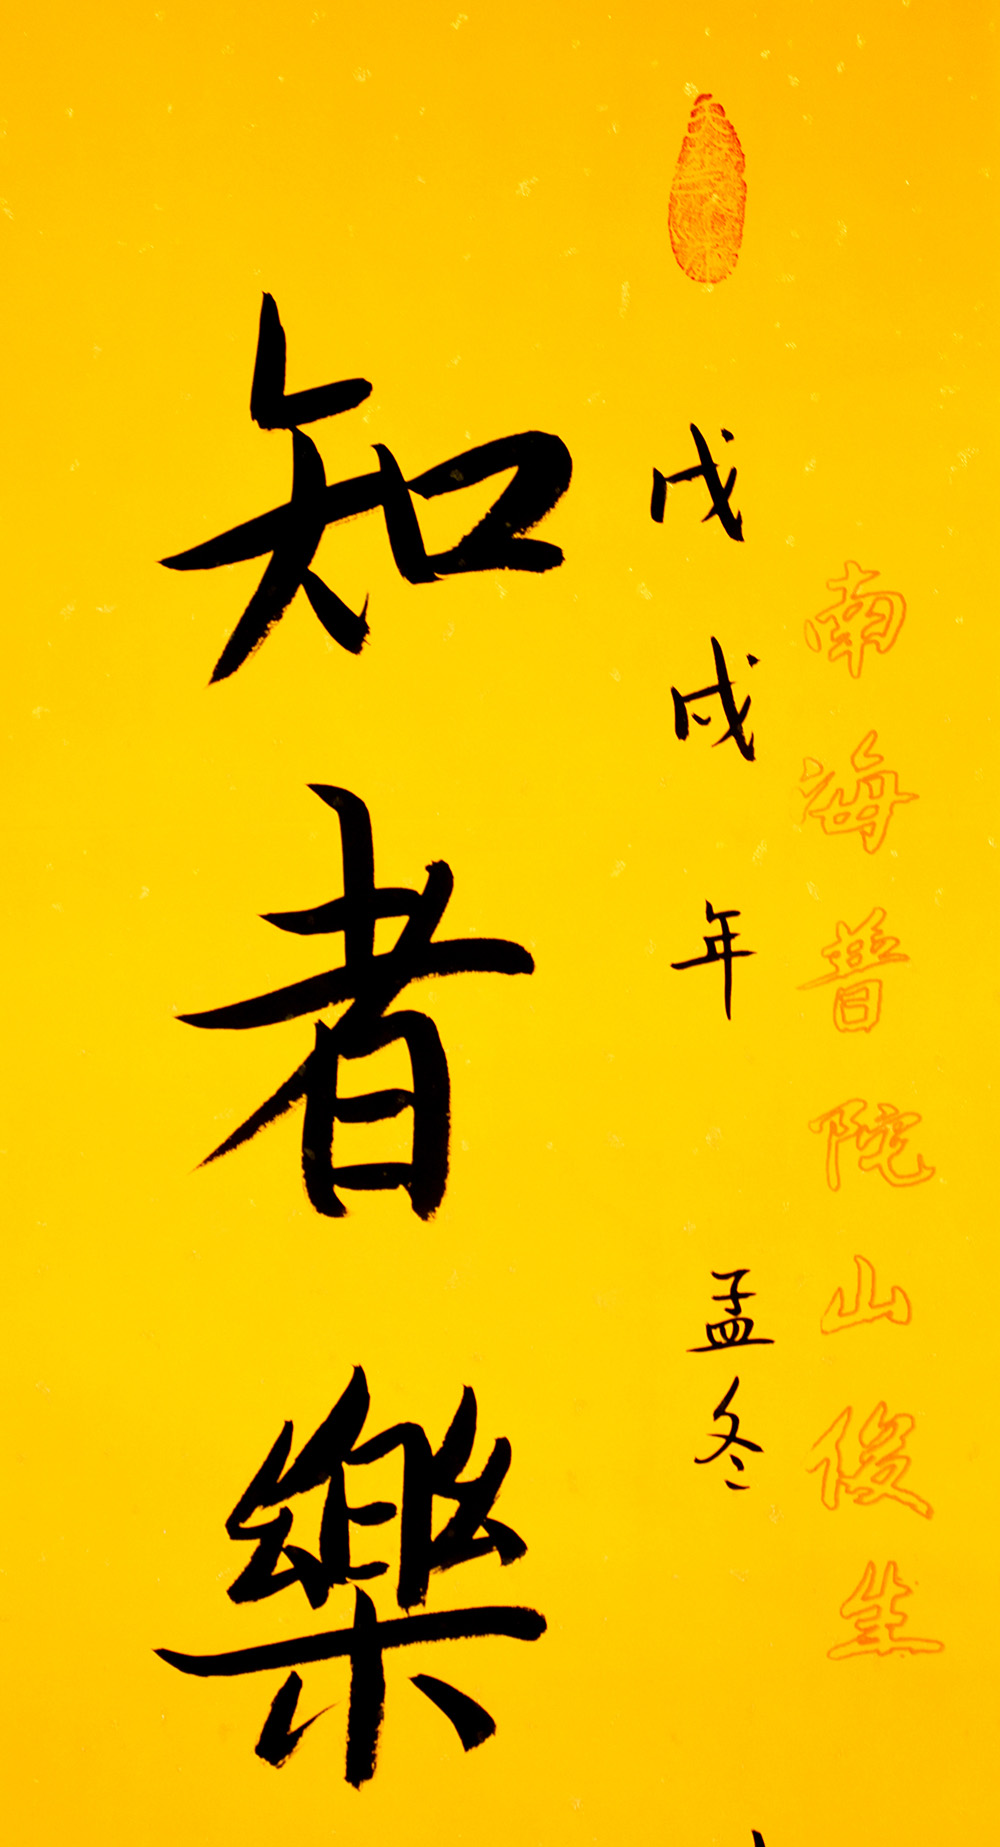 南海普陀山俊生
戊戌年 孟冬
知者樂